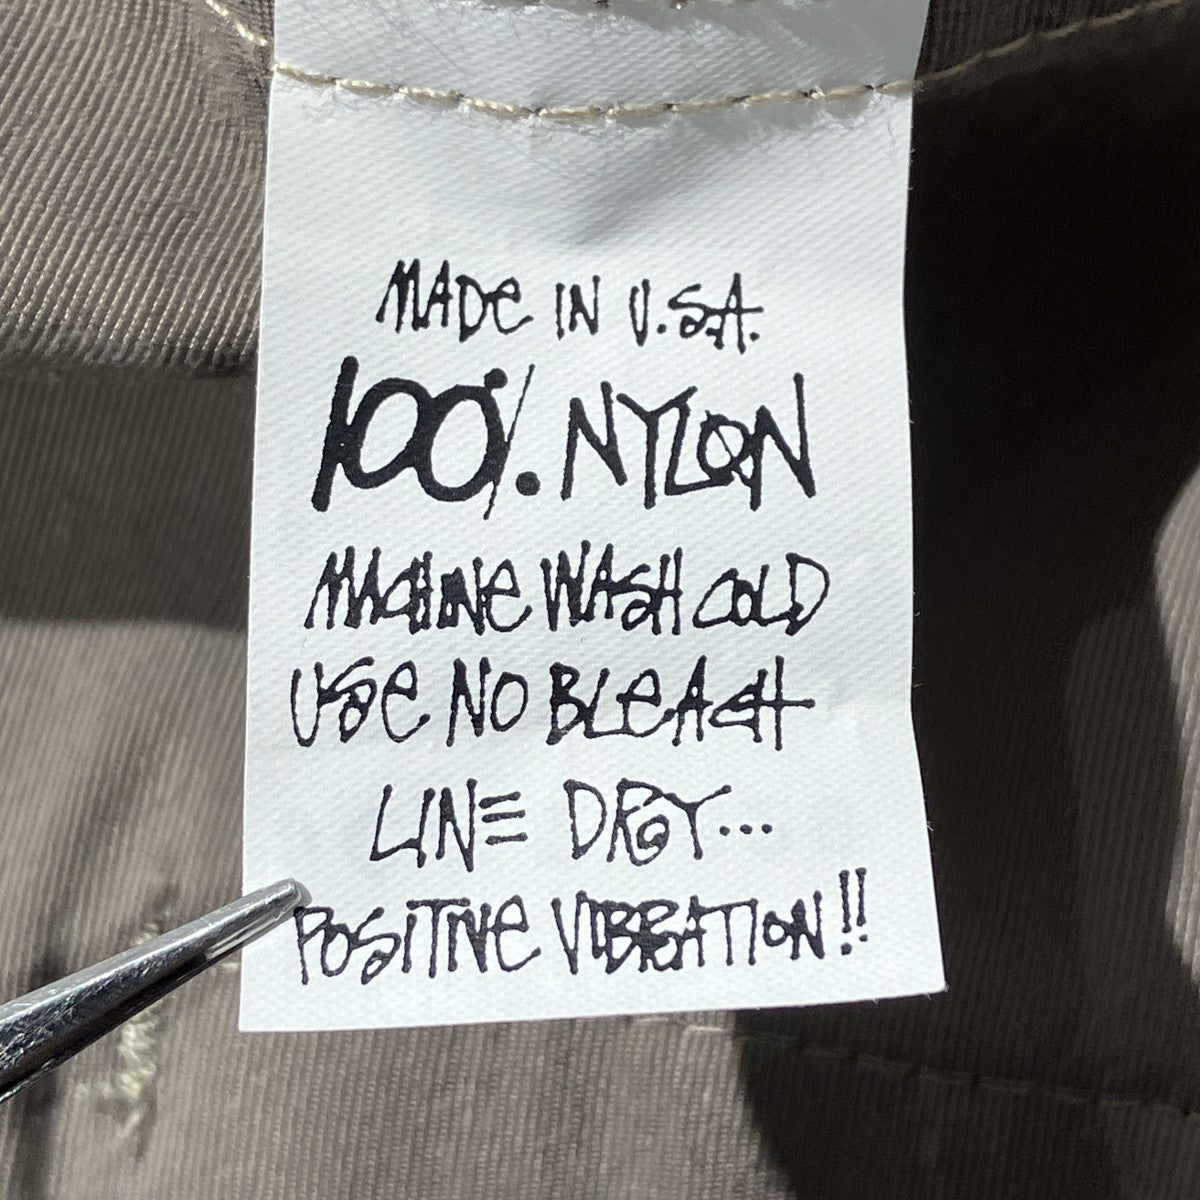 MADe IN U.S.A.
100% NYLON
MACHINE WASH COLD
USe NO BLeACH
LINE DRY...
POSiTIVe VIBRATION!!